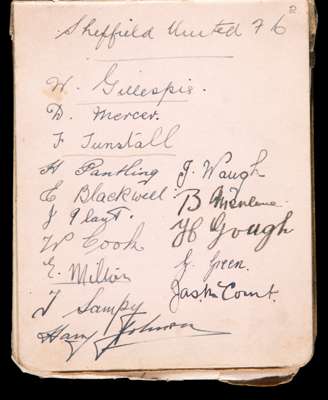 Sheffield United F b
2
W. Gillespie.
D. Mercer.
F Tunstall
H Pantling
J. Waugh
E Blackwell
B Menlove
J Plant.
H Gough
W Cook
G. Green.
E. Milton
Jas. McCourt.
T Sampy
Harry Johnson